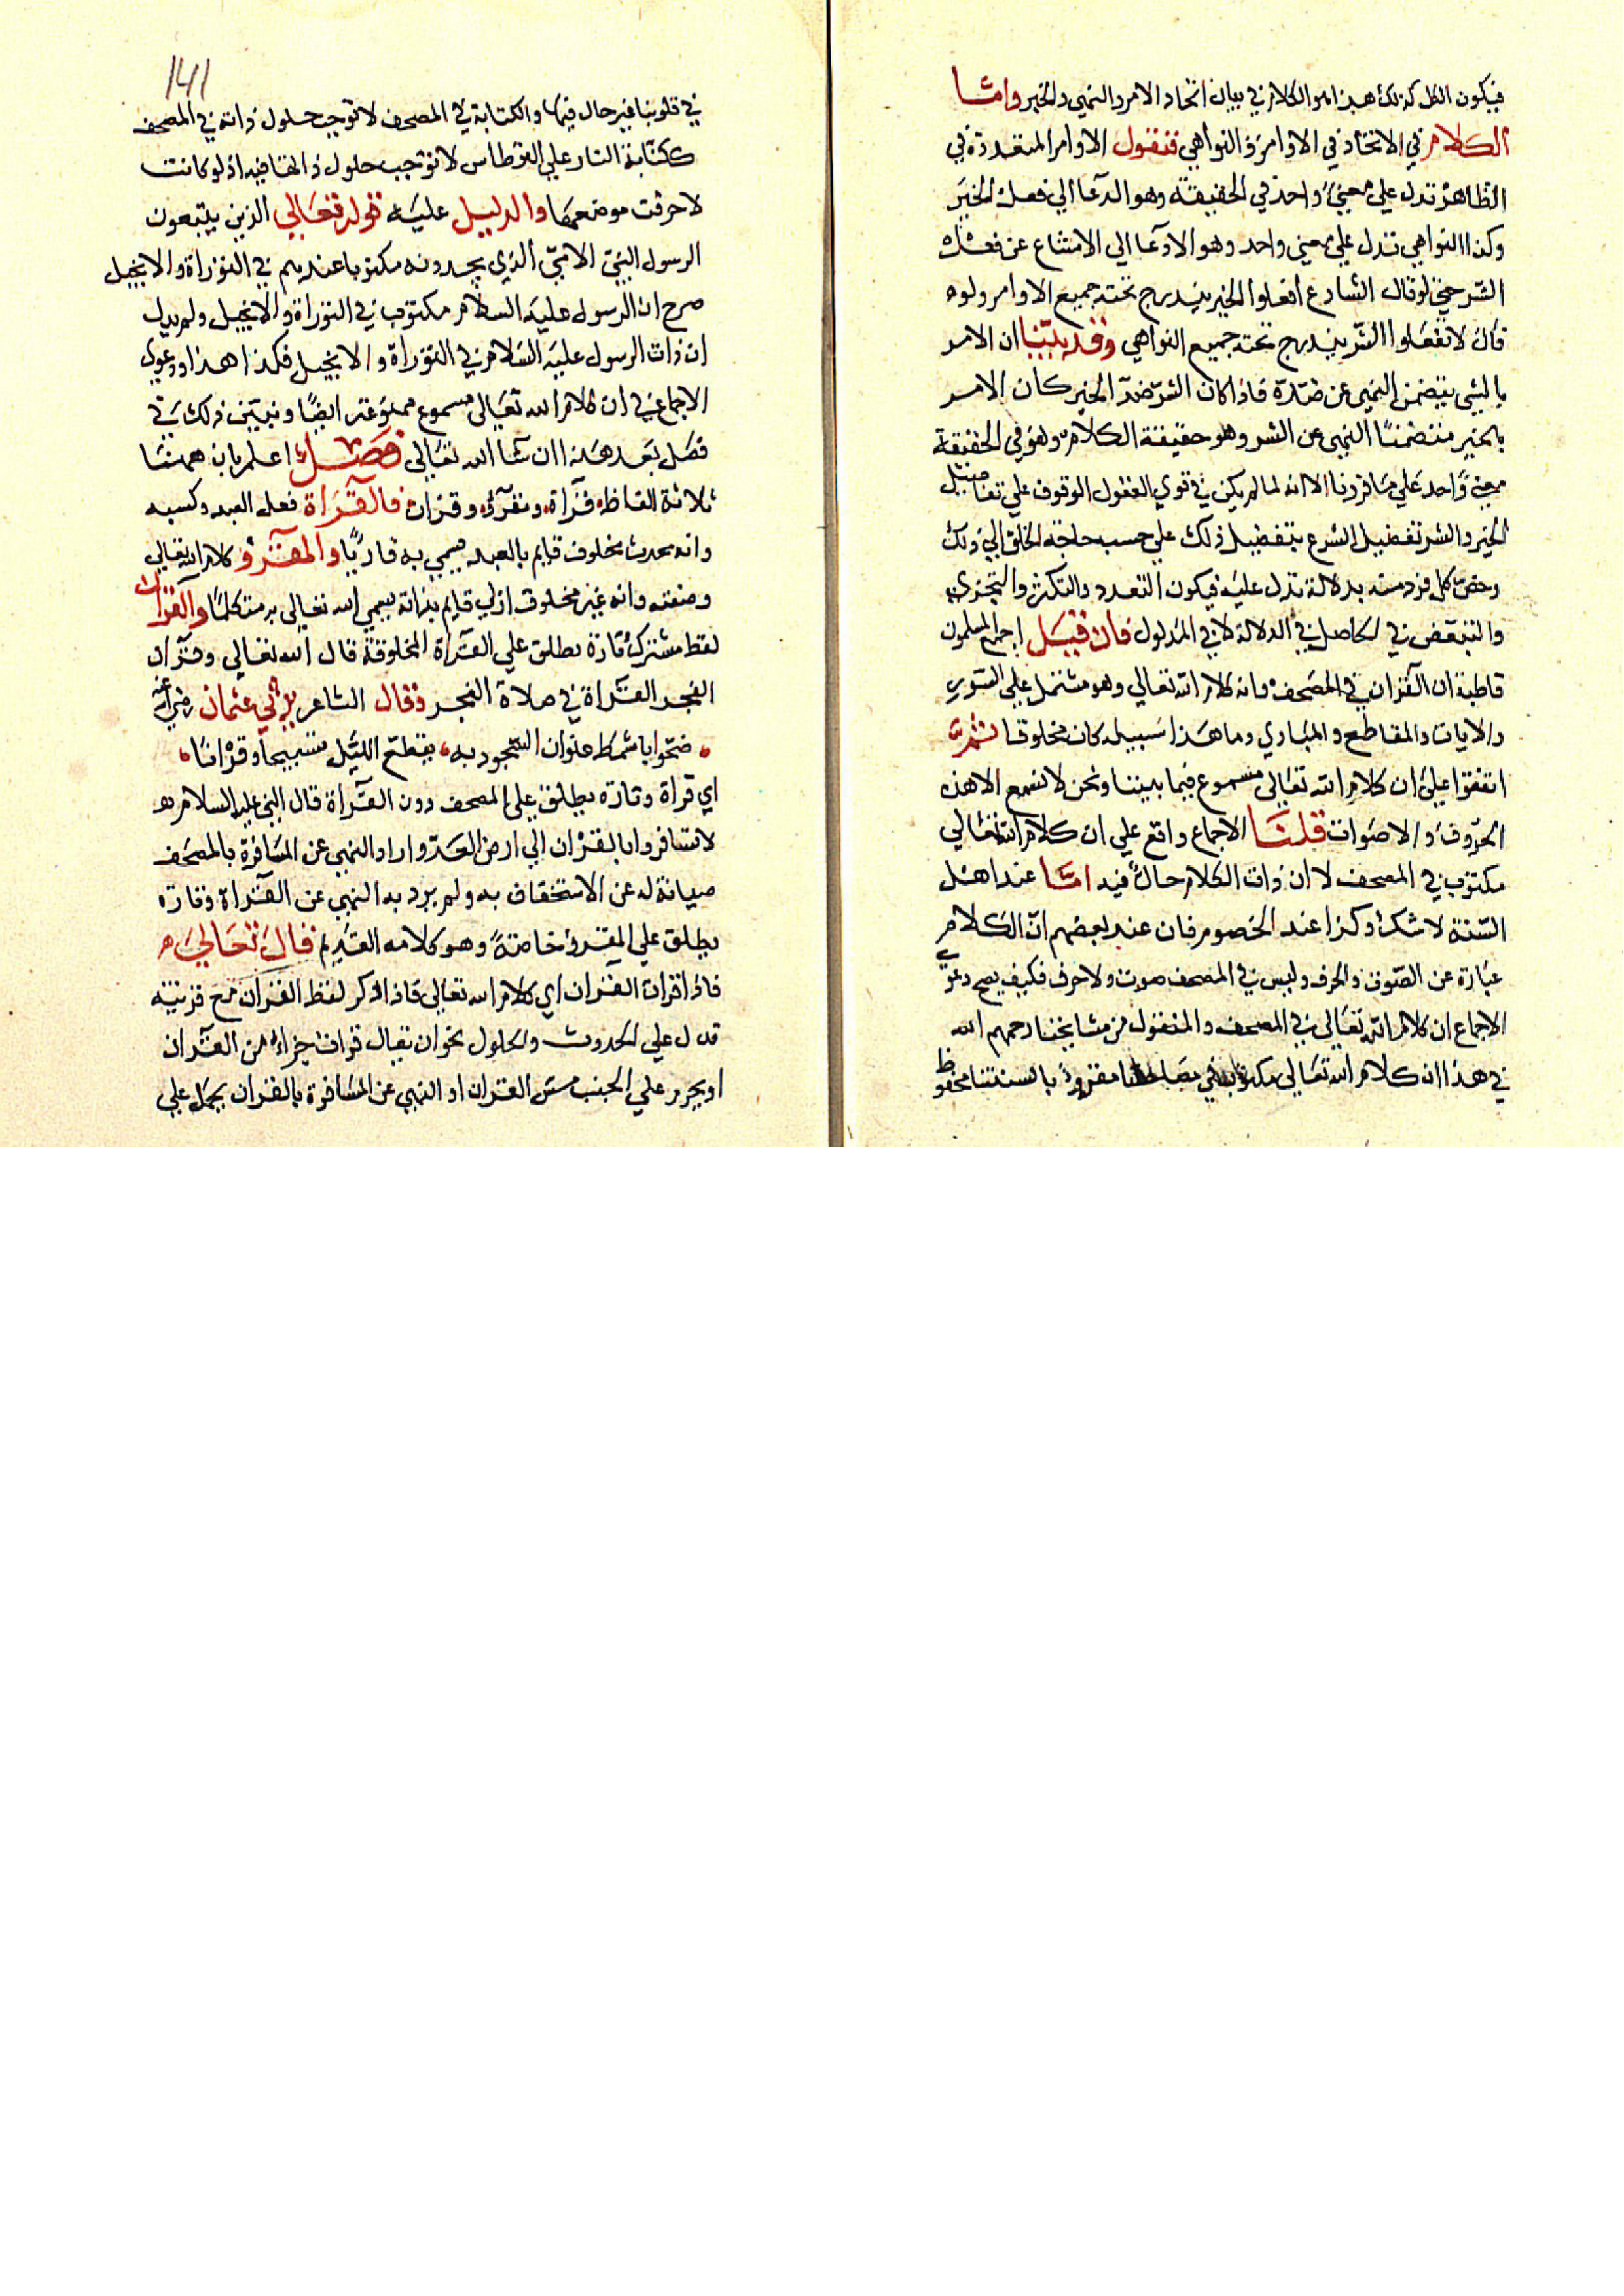 فيكون الكل كذلك هذا هو الكلام في بيان اتحاد الامر والنهي والخبر واما
الكلام في الاتحاد في الاوامر والنواهي فنقول الاوامر المتعددة في
الظاهر تدل علي معني واحد في الحقيقة وهو الدعا الي فعل الخير
وكذا النواهي تدل علي معني واحد وهو الادعا الي الامتناع عن فعل
الشر حتي لو قال الشارع افعلوا الخير يندرج تحته جميع الاوامر ولو
قال لا تفعلوا الشر يندرج تحته جميع النواهي وقد بيّنا ان الامر
بالشي يتضمن النهي عن ضدّه فاذا كان الشر ضد الخير كان الامر
بالخير متضمنا النهي عن الشر وهو حقيقة الكلام وهو في الحقيقة
معني واحد علي ما قررنا الا انه لما لم يكن في قوي العقول الوقوف علي تفاصيل
الخير والشر تفضل الشرع بتفصيل ذلك علي حسب حاجة الخلق الي ذلك
وخص كل فرد منه بدلالة تدل عليه فيكون التعدد والتكثر والتجزي
والتبعض في الحاصل في الدلالة لا في المدلول فان قيل اجمع المسلمون
قاطبة ان القران في المصحف وانه كلام الله تعالي وهو مشتمل علي السور
والايات والمقاطع والمبادي وما هذا سبيله كان مخلوقا ثم
اتفقوا علي ان كلام الله تعالي مسموع فيما بيننا ونحن لا نسمع الا هذه
الحروف والاصوات قلنا الاجماع واقع علي ان كلام الله تعالي
مكتوب في المصحف لا ان ذات الكلام حالّ فيه اما عند اهل
السّنة لا شك وكذا عند الخصوم فان عند بعضهم ان الكلام
عبارة عن الصوت والحرف وليس في المصحف صوت ولا حرف فكيف يصح دعوي
الاجماع ان كلام الله تعالي في المصحف والمنقول من مشايخنا رحمهم الله
في هذا ان كلام الله تعالي مكتوب في مصاحفنا مقرو بالسنتنا محفوظ
141
في قلوبنا غير حال فيها والكتابة في المصحف لا توجب حلول ذاته في المصحف
ككتابة النار علي القرطاس لا توجب حلول ذاتها فيه اذ لو كانت
لاحرقت موضعها والدليل عليه قوله تعالي الذين يتبعون
الرسول النبيّ الاميّ الذي يجدونه مكتوبا عندهم في التوراة والانجيل
صرح ان الرسول عليه السلام مكتوب في التوراة والانجيل ولم يدل
ان ذات الرسول عليه السلام في التوراة والانجيل فكذا هذا ودعوي
الاجماع في ان كلام الله تعالي مسموع ممنوعة ايضا ونبين ذلك في
فصل بعد هذا ان شا الله تعالي فصل اعلم بان همنا
ثلاثة الفاظ قراة ومقرؤ وقران فالقراة فعل العبد وكسبه
وانه محدث مخلوق قايم بالعبد يسمي به قاريًا والمقرو كلام الله تعالي
وصفته وانه غير مخلوق ازلي قايم بذاته يسمي الله تعالي به متكلمًا والقران
لفظ مشترك تارة يطلق علي القراة المخلوقة قال الله تعالي وقران
الفجر القراة في صلاة الفجر وقال الشاعر يرثي عثمان رضي الله عنه
ضحّوا باشمط عنوان السّجود به يقطع الليل تسبيحا وقرانا
اي قراة وتارة يطلق علي المصحف دون القراة قال النبي عليه السلام
لا تسافروا بالقران الي ارض العدو اراد النهي عن المسافرة بالمصحف
صيانة له عن الاستخفاف به ولم يرد به النهي عن القراة وتارة
يطلق علي المقرو خاصةً وهو كلامه القديم قال تعالي
فاذا قرات القران اي كلام الله تعالي فاذا ذكر لفظ القران مع قرينة
تدل علي الحدوث والحلول نحو ان يقال قرات جزا من القران
او يحرم علي الجنب مس القران او النهي عن المسافرة بالقران يحمل علي